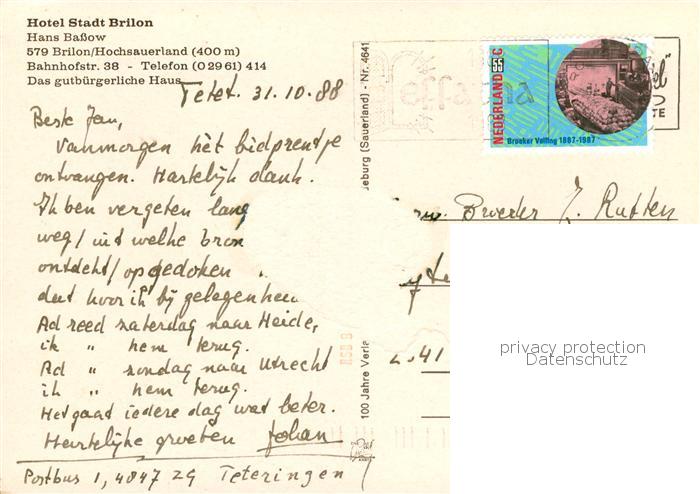 Hotel Stadt Brilon
Hans Baßow
579 Brilon/Hochsauerland (400 m)
Bahnhofstr. 38 - Telefon (0 29 61) 414
Das gutbürgerliche Haus
Tetet. 31.10.88
Beste Jan,
Vanmorgen het bidprentje
ontvangen. Hartelijk dank.
Ik ben vergeten lang
weg/uit welke bron
ontdekt/opgedoken
dat hoor ik bij gelegenhei
Ad reed zaterdag naar Heide,
ik " hem terug.
Ad " zondag naar Utrecht
ik " hem terug.
Het gaat iedere dag wat beter.
Hartelijke groeten Johan
Postbus 1, 4847 ZG Teteringen
deburg (Sauerland) - Nr. 4641
100 Jahre Verla
NEDERLAND 55 C
Broeker Veiling 1887-1987
Broeder J. Rutten
privacy protection
Datenschutz